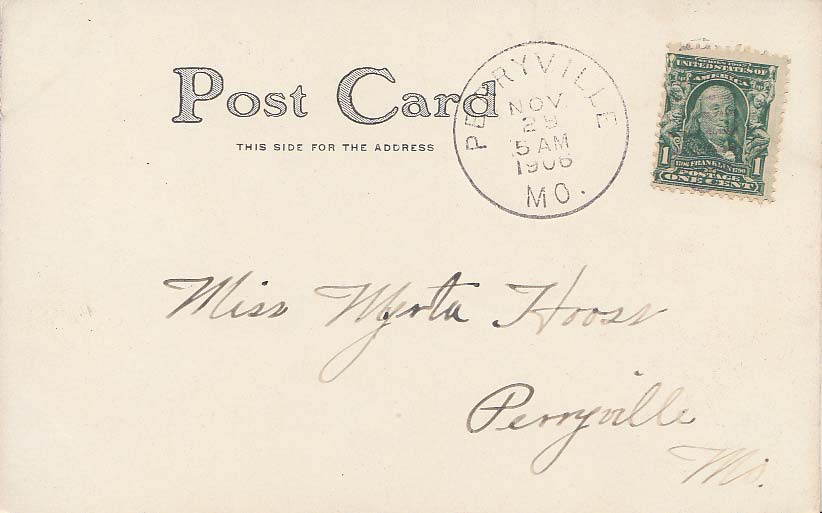 Post Card
THIS SIDE FOR THE ADDRESS
PERRYVILLE
NOV
29
5 AM
1906
MO.
UNITED STATES OF
AMERICA
1 1
1706 FRANKLIN 1790
POSTAGE
ONE CENT
Miss Myrta
Perryville
Mo.